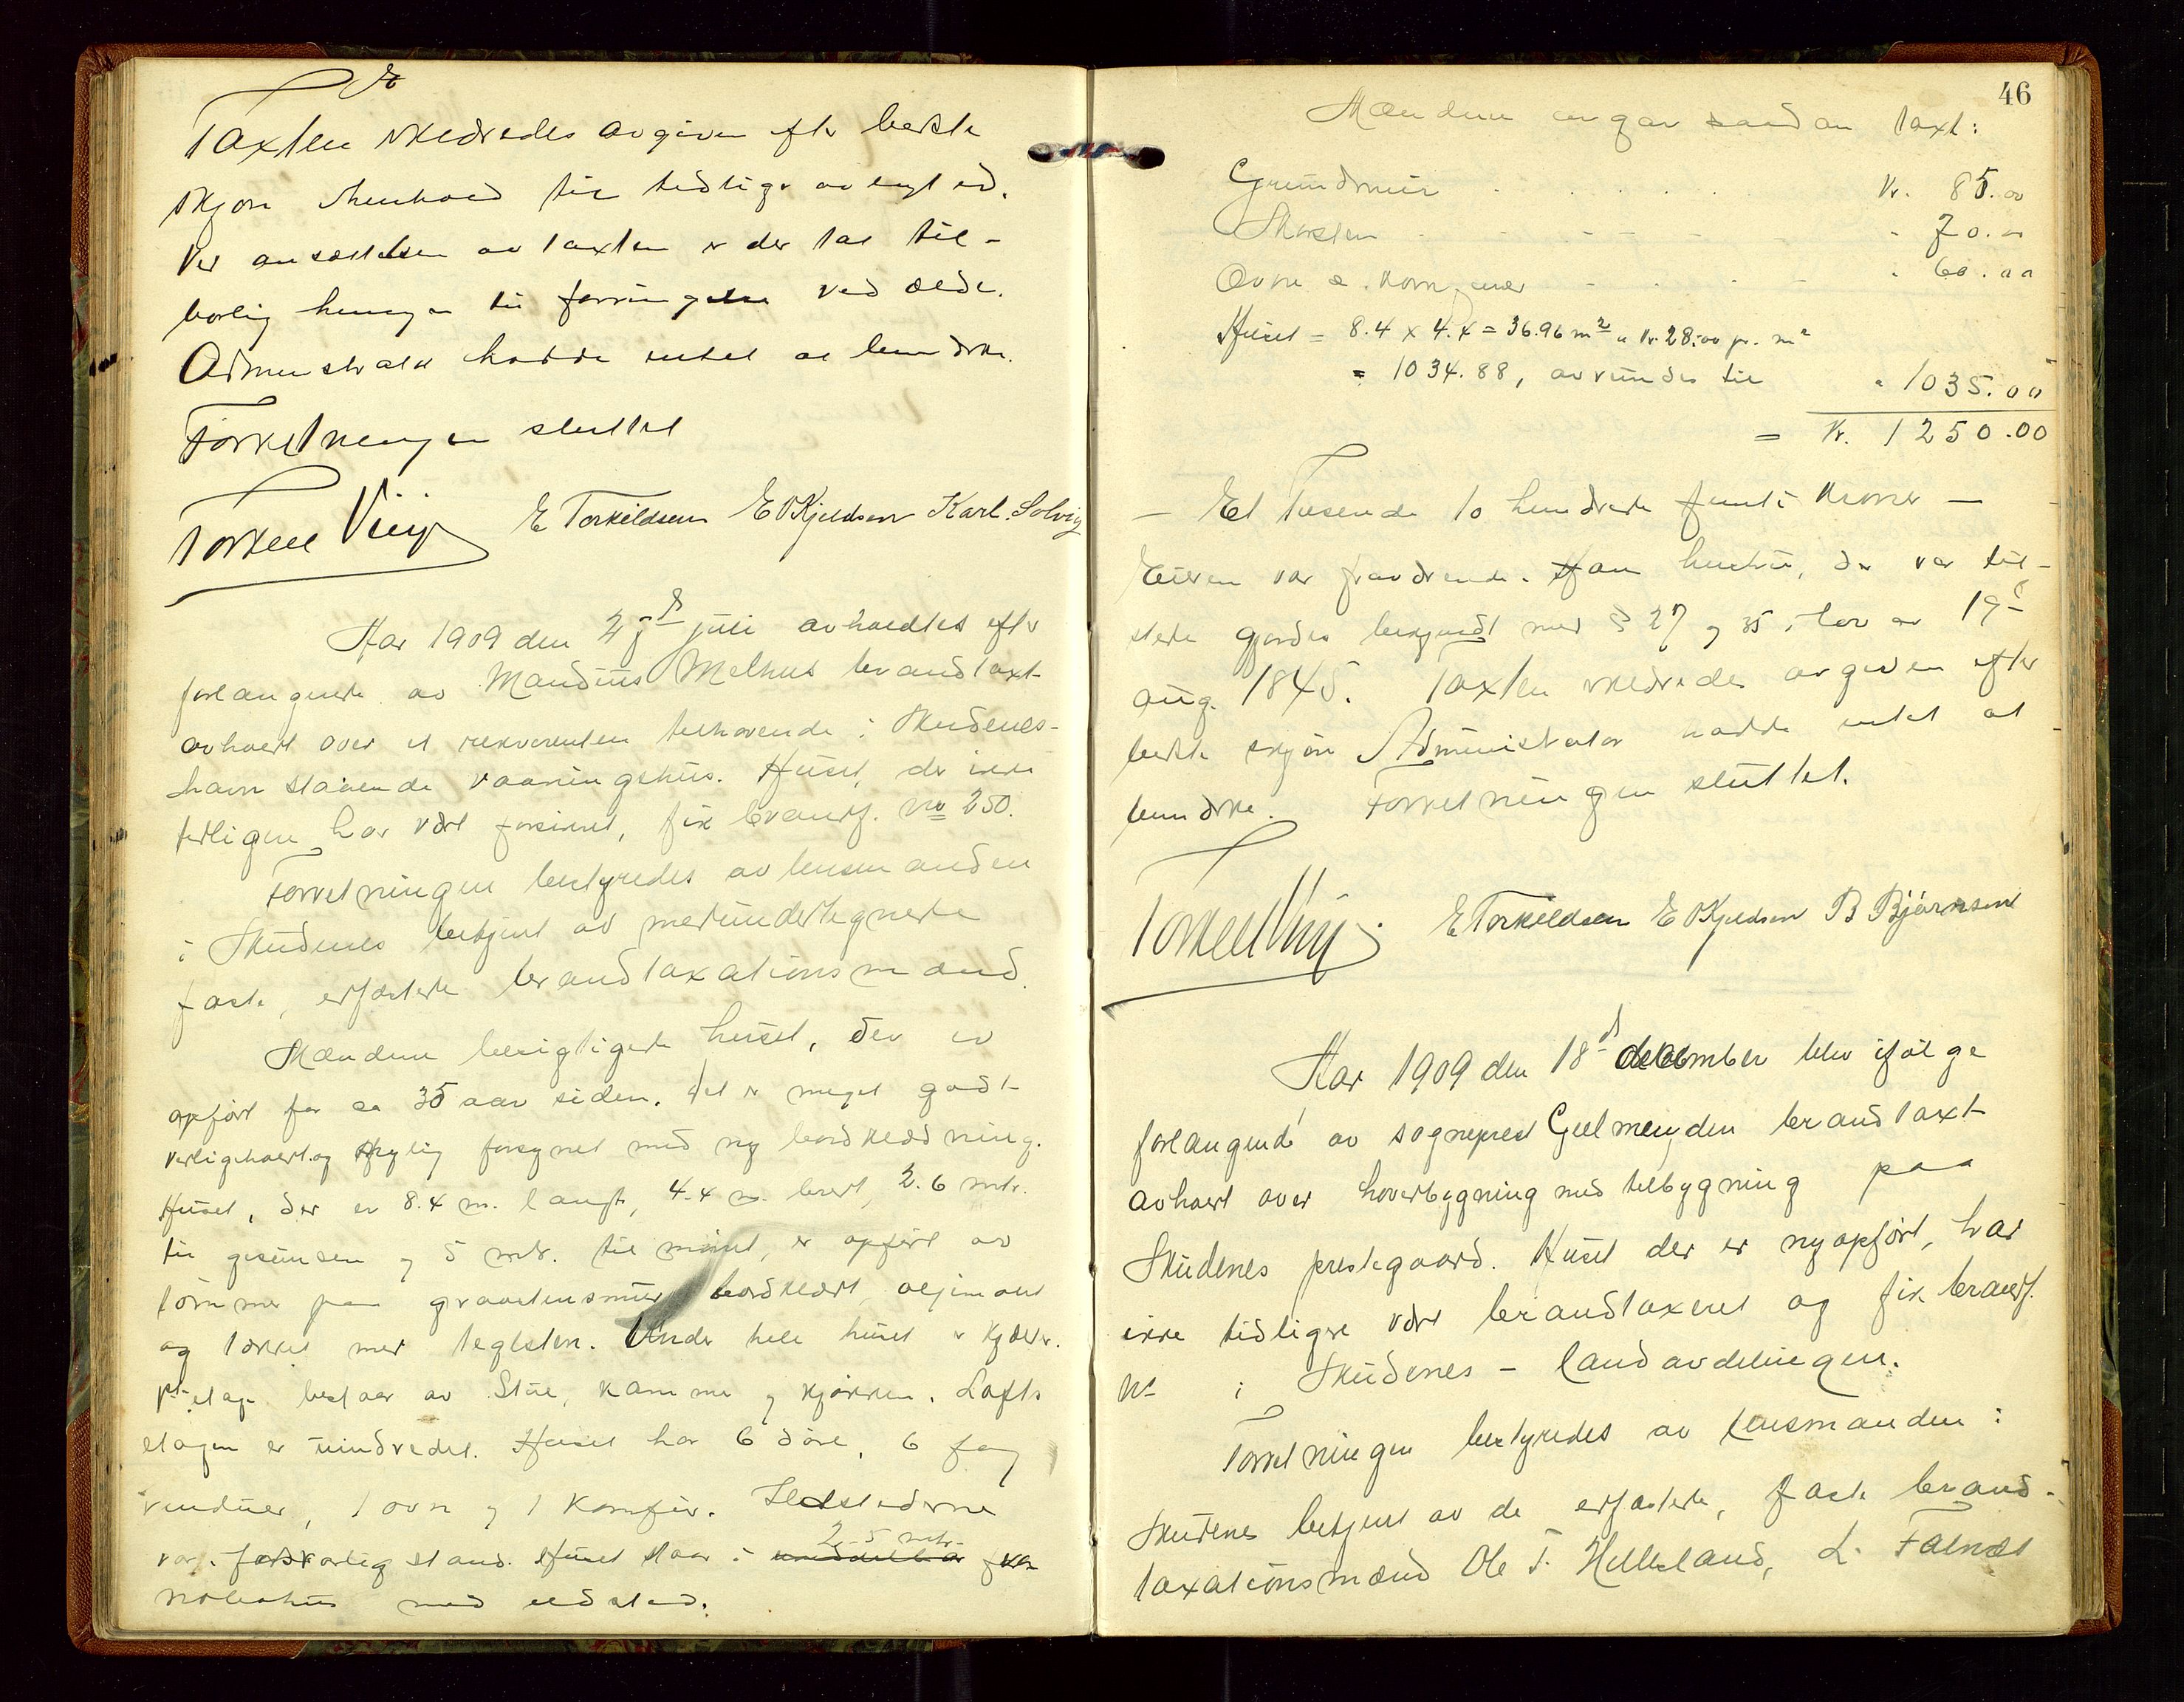 Taxten skedredes avgiven efter bedste
skjøn i henhold til tidligere avlagt ed.
Ved ansættelsen av taxten er der tat til-
børlig hensyn til forringelse ved ælde.
Administrator hadde intet at bemærke.
Forretningen sluttet
Torkell Viig E Torkildsen E O Kjeldsen Karl. Solvig
Aar 1909 den juli avholdtes efter
forlangende av Mandius Melhus brandtaxt
avholdt over et rekvirenten tilhørende i Skudenes-
havn staaende vaaningshus. Huset, der ikke
tidligere har vært forsikret, fik brandf. No 250.
Forretningen bestyredes av lensmanden
i Skudenes betjent av medundertegnede
faste, edfæstede brandtaxationsmænd.
Mændene besigtigede huset, der er
opført for ca 35 aar siden. Det er meget godt
vedligeholdt og nylig forsynet med ny bordklædning.
Huset, der er 8.4 m. langt, 4.4 m. bredt, 2.6 mtr.
til gesimsen og 5 mtr. til mønet, er opført av
tømmer paa graastensmur, bordklædt, oljemalt
og tækket med teglsten. Under hele huset er kjælder.
1ste etage bestaar av Stue, kammer og kjøkken. Lofts
etagen er uindredet. Huset har 6 døre, 6 fag
vinduer, 1 ovn og 1 Komfur. Ildstederne
var i forsvarlig stand. Huset staar i 2.5 mtr. fra
nabohus med ildsted.
46
Mændene avgav saadan taxt:
Grundmur . . . . . Kr. 85.00
Skorsten - - - - - - " 70.00
Ovne & Komfurer - . . - " 60.00
Huset = 8.4 x 4.4 = 36.96 m² a Kr. 28.00 pr. m²
= 1034.88, avrundes til " 1035.00
= Kr. 1250.00
- Et Tusende to hundrede femti Kroner -
Eieren var fraværende. Hans hustru, der var til-
stede gjordes bekjendt med § 27 og 35 i lov av 19de
aug. 1845. Taxten skedredes avgiven efter
bedste skjøn Administrator hadde intet at
bemærke. Forretningen sluttet.
Torkell Viig E Torkildsen E O Kjeldsen B Bjørnsen
Aar 1909 den 18de december blev ifølge
forlangende av sogneprest Gjelmeyden brandtaxt
avholdt over hovedbygning med tilbygning paa
Skudenes prestegaard. Huset der er nyopført, har
ikke tidligere vært brandtaxeret og fik brandf.
No i Skudenes - landavdelingen.
Forretningen bestyredes av lensmanden i
Skudenes betjent av de edfæstede, faste brand-
taxationsmænd Ole T. Helleland, L. Falnæs